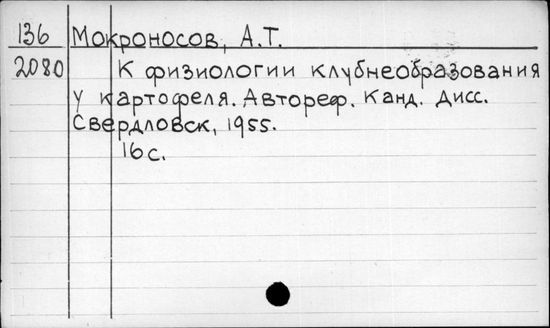 136 Мокроносов, А.Т.
2080 К физиологии клубнеобразования
у картофеля. Автореф. Канд. Дисс.
Свердловск, 1955.
16 с.